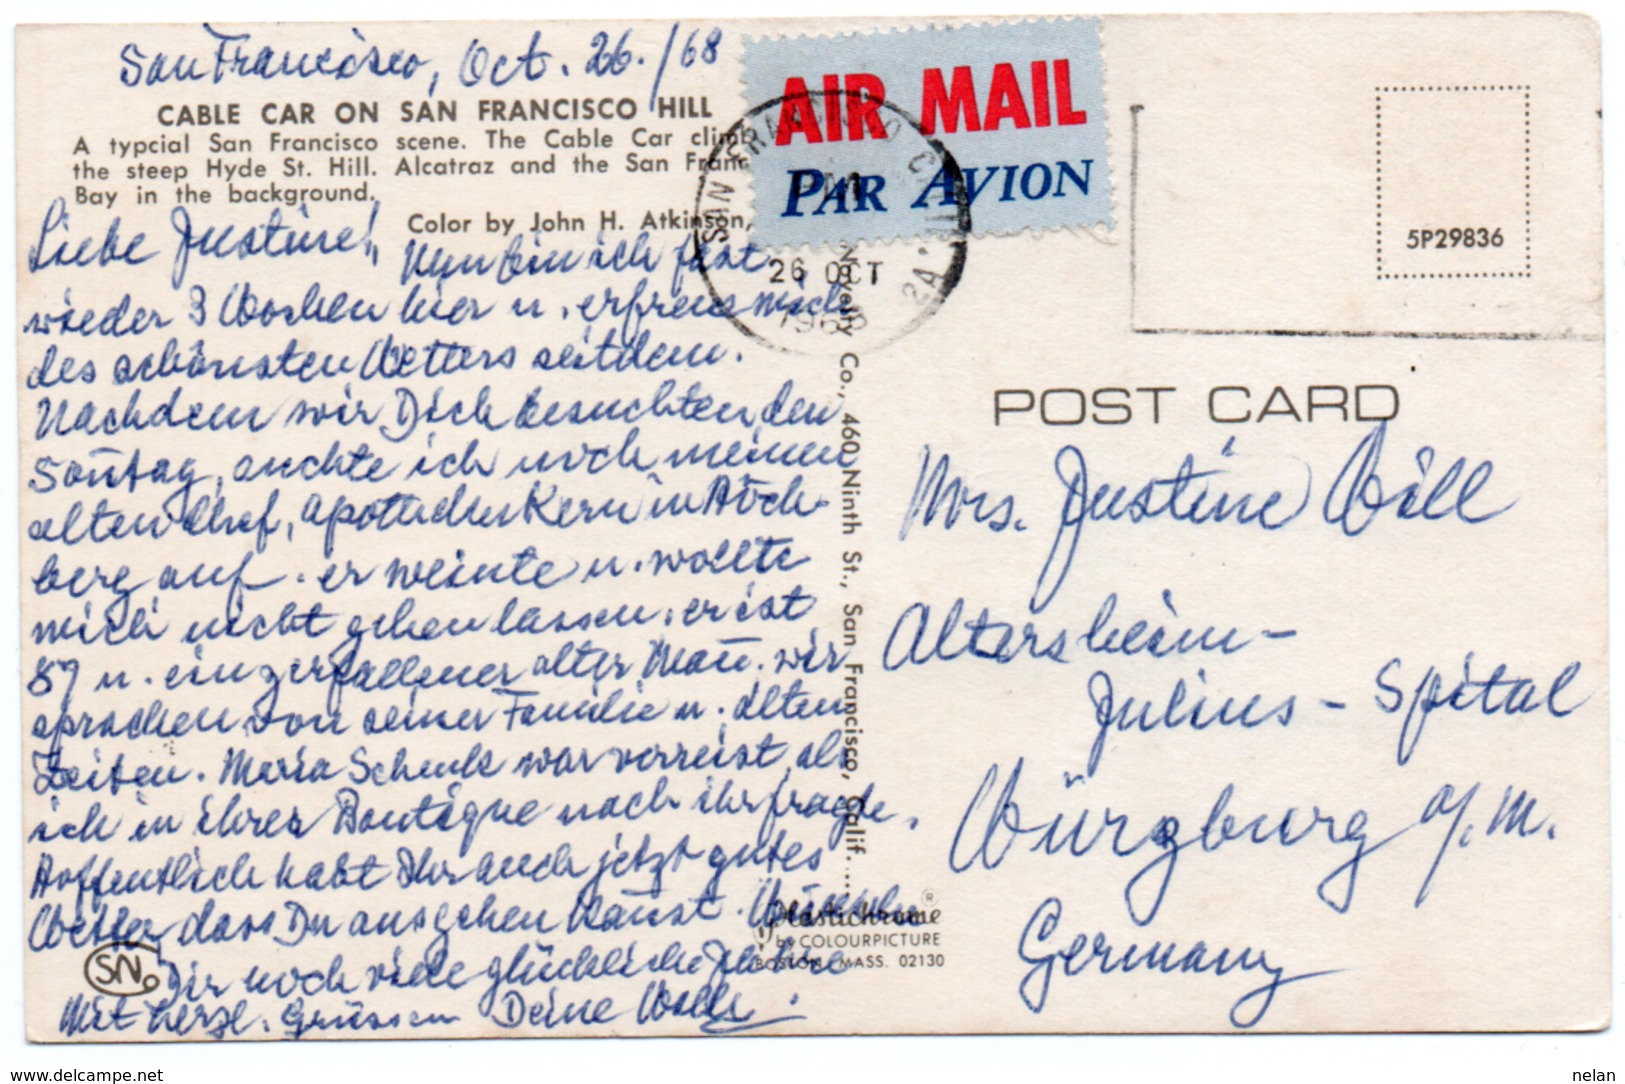 San Francisco, Oct. 26./68
CABLE CAR ON SAN FRANCISCO HILL
A typcial San Francisco scene. The Cable Car climb
the steep Hyde St. Hill. Alcatraz and the San Franc
Bay in the background.
Color by John H. Atkinson,
Liebe Justine!
Nun bin ich fast
wieder 3 Wochen hier u. erfreue mich
des schönsten Wetters seitdem.
Nachdem wir Dich besuchten, den
Soñtag, suchte ich noch meinen
alten Chef, Apotheker Kern in Höch-
berg auf. er weinte u. wollte
mich nicht gehen lassen. er ist
87 u. ein zerfallener alter Mañ. wir
sprachen von seiner Familie u. alten
Zeiten. Maria Schenk war verreist, als
ich in ihrer Boutique nach ihr fragte.
Hoffentlich habt Ihr auch jetzt gutes
Wetter, dass Du ausgehen kañst. Wünsche
Dir noch viele glückliche Jahre
Mit herzl. Grüssen Deine
SN
AIR MAIL
PAR AVION
SAN FRANCISCO CALIF
PM
26 OCT
1968
2A
Novelty Co., 460 Ninth St., San Francisco, Calif....
Plastichrome ®
by COLOURPICTURE
BOSTON, MASS. 02130
5P29836
POST CARD
Mrs. Justine Will
Altersheim-
Julius-Spital
Würzburg a/M.
Germany
delcampe.net
nelan